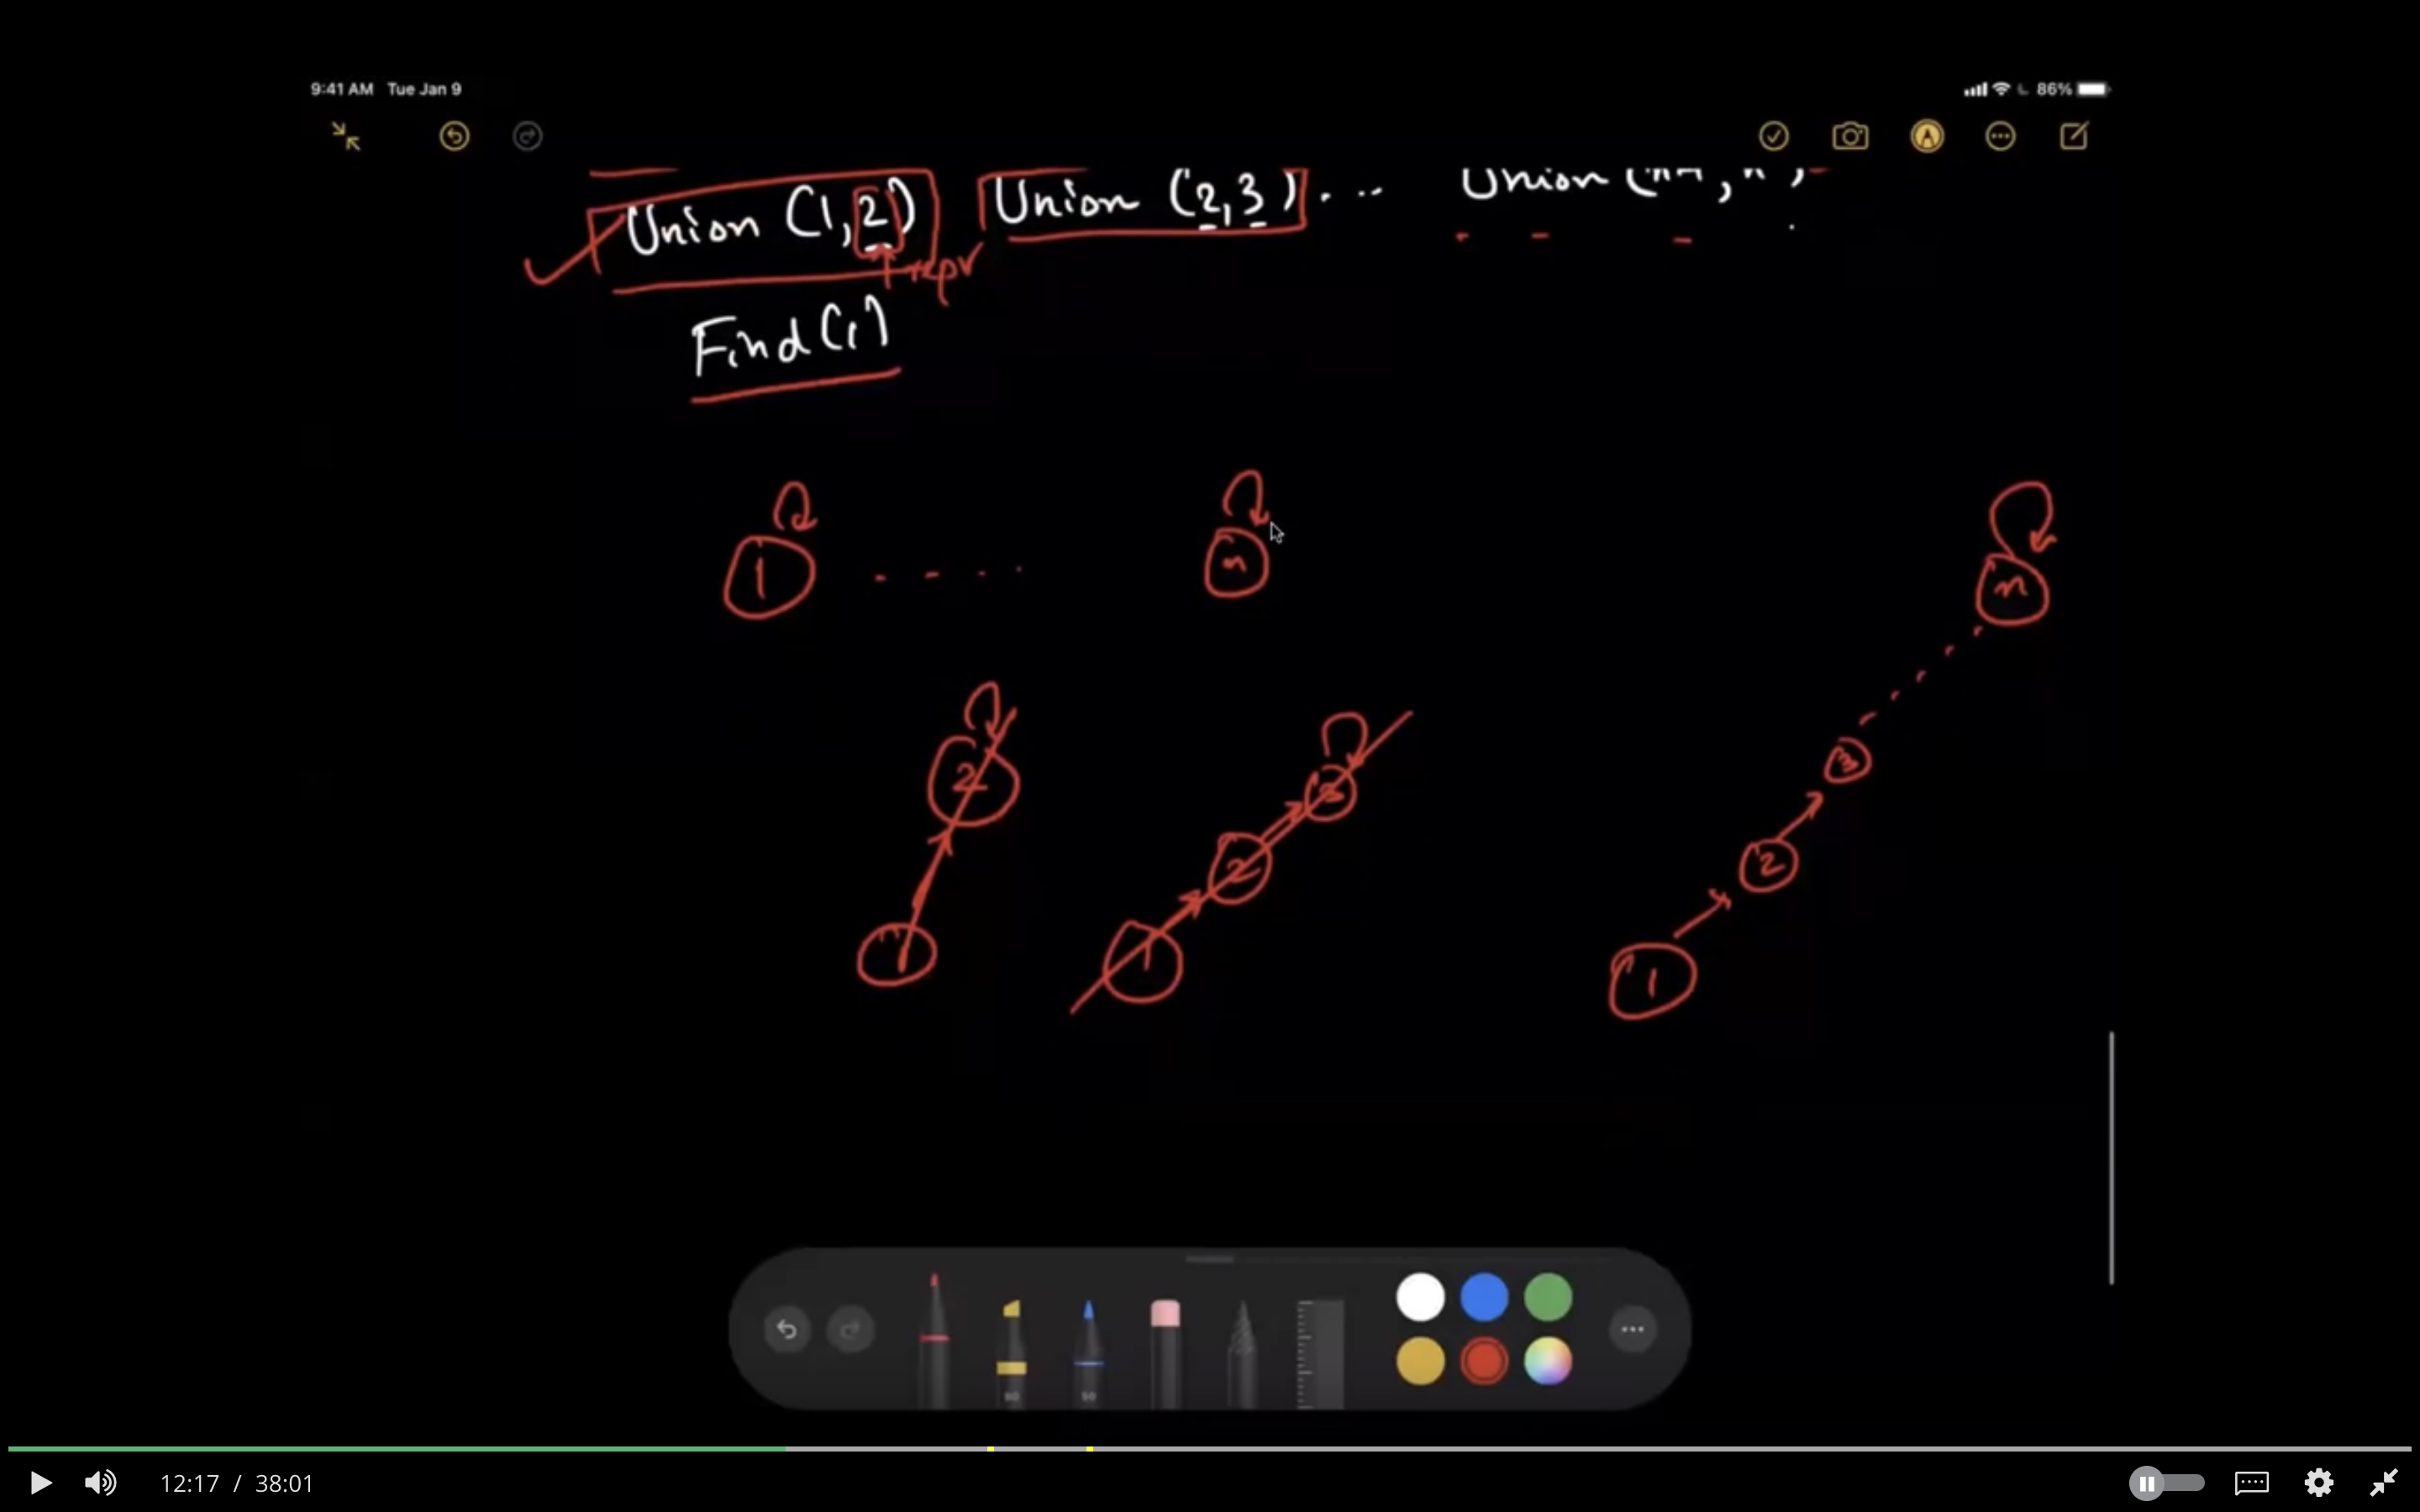 9:41 AM Tue Jan 9 86%
Union (1,2) Union (2,3) ... Union (n-1, n)
repr
Find(1)
1 n n
2 3 3
2 2
1 1 1
80 50
12:17 / 38:01